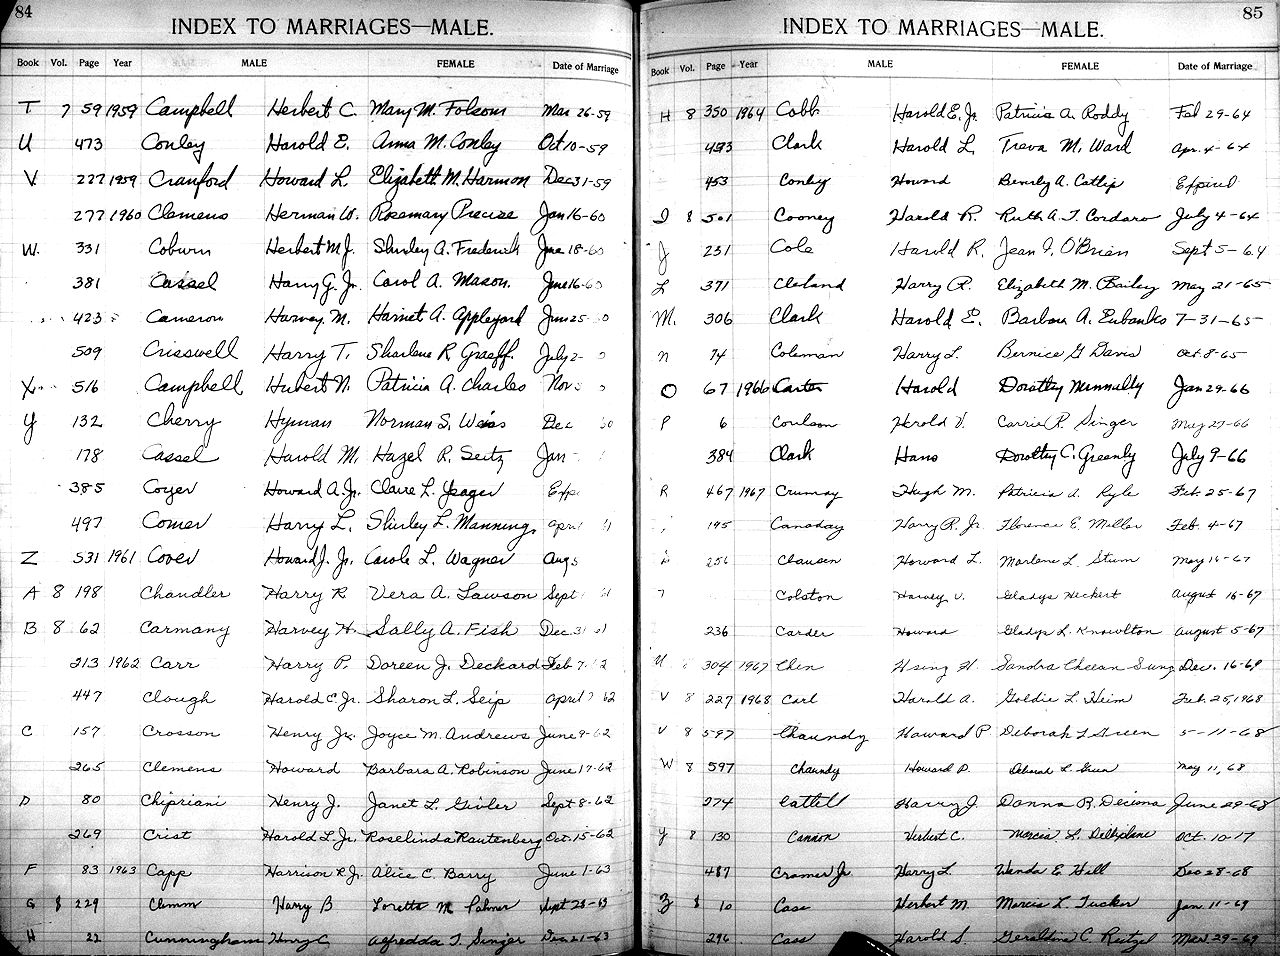 84
INDEX TO MARRIAGES—MALE.
Book Vol. Page Year MALE FEMALE Date of Marriage
T 7 59 1959 Campbell Herbert C. Mary M. Folsom Mar 26-59
U 473 Conley Harold E. Anna M. Conley Oct 10-59
V 227 1959 Cranford Howard L. Elizabeth M. Harmon Dec 31-59
277 1960 Clemens Herman W. Rosemary Precise Jan 16-60
W. 331 Coburn Herbert M J. Shirley A. Frederick June 18-60
381 Cassel Harry G. Jr. Carol A. Mason June 16-60
423 Cameron Harvey M. Harriet A. Appleyard Jun 25
509 Crisswell Harry T. Sharlene R Graeff. July 2-
X 516 Campbell Hubert N. Patricia A. Charles Nov
Y 132 Cherry Hyman Norman S. Weiss Dec
178 Cassel Harold M. Hazel R. Seitz Jan
385 Coyer Howard A. Jr. Claire L. Yeager
497 Comer Harry L. Shirley L. Manning April
Z 531 1961 Cover Howard J. Jr. Carole L. Wagner Aug
A 8 198 Chandler Harry R Vera A. Lawson Sept
B 8 62 Carmany Harvey H. Sally A. Fish Dec 31
213 1962 Carr Harry P. Doreen J. Deckard Feb 7
447 Clough Harold C. Jr. Sharon L. Seip April 62
C 157 Crosson Henry Jr. Joyce M. Andrews June 9-62
265 Clemens Howard Barbara A. Robinson June 17-62
D 80 Chipriani Henry J. Janet L. Givler Sept 8-62
269 Crist Harold L. Jr. Roselinda Rautenberg Oct. 15-62
F 83 1963 Capp Harrison R Jr. Alice C. Barry June 1-63
G 8 229 Climm Harry B Loretta M Palmer Sept 28-63
H 22 Cunningham Henry C Alfredda T. Singer Dec 21-63
85
INDEX TO MARRIAGES—MALE.
Book Vol. Page Year MALE FEMALE Date of Marriage
H 8 350 1964 Cobb Harold E. Jr. Patricia A. Roddy Feb 29-64
493 Clark Harold L. Treva M. Ward Apr. 4-64
453 Conley Howard Beverly A. Catlip Expired
I 8 501 Cooney Harold R. Ruth A. T. Cordaro July 4-64
J 231 Cole Harold R. Jean I. O'Brien Sept 5-64
L 371 Cleland Harry R. Elizabeth M. Bailey May 21-65
M. 306 Clark Harold E. Barbara A. Eubanks 7-31-65
N 74 Coleman Harry L. Bernice G Davis Oct. 8-65
O 67 1966 Carter Harold Dorothy Jan 29-66
P 6 Coulson Herold V. Carrie R. Singer May 27-66
384 Clark Hans Dorothy C. Greenly July 9-66
R 467 1967 Crumay Hugh M. Patricia A. Ryle Feb. 25-67
195 Canaday Harry R. Jr. Florence E. Miller Feb. 4-67
256 Clausen Howard L. Marlene L. Stum May 14-67
Colston Harvey V. Gladys Heckert August 16-67
236 Carder Howard Gladys L. Knowlton August 5-67
U 8 304 1967 Chen Hsing H. Sandra Cheean Sung Dec. 16-67
V 8 227 1968 Carl Harold A. Goldie L. Heim Feb. 25, 1968
V 8 597 Chaundy Howard P. Deborah L Green 5-11-68
W 8 597 Chaundy Howard P. Deborah L. Green May 11, 68
274 Cattell Harry J. Donna R. Decima June 29-68
Y 8 130 Cannon Herbert C. Marcia L. Dellaplane Oct. 10-17
487 Cramer Jr. Harry L. Wanda E. Hill Dec 28-68
Z 8 10 Case Herbert M. Marcia L. Tucker Jan. 11-69
296 Cass Harold S. Geraldine C. Reitzel Mar. 29-69